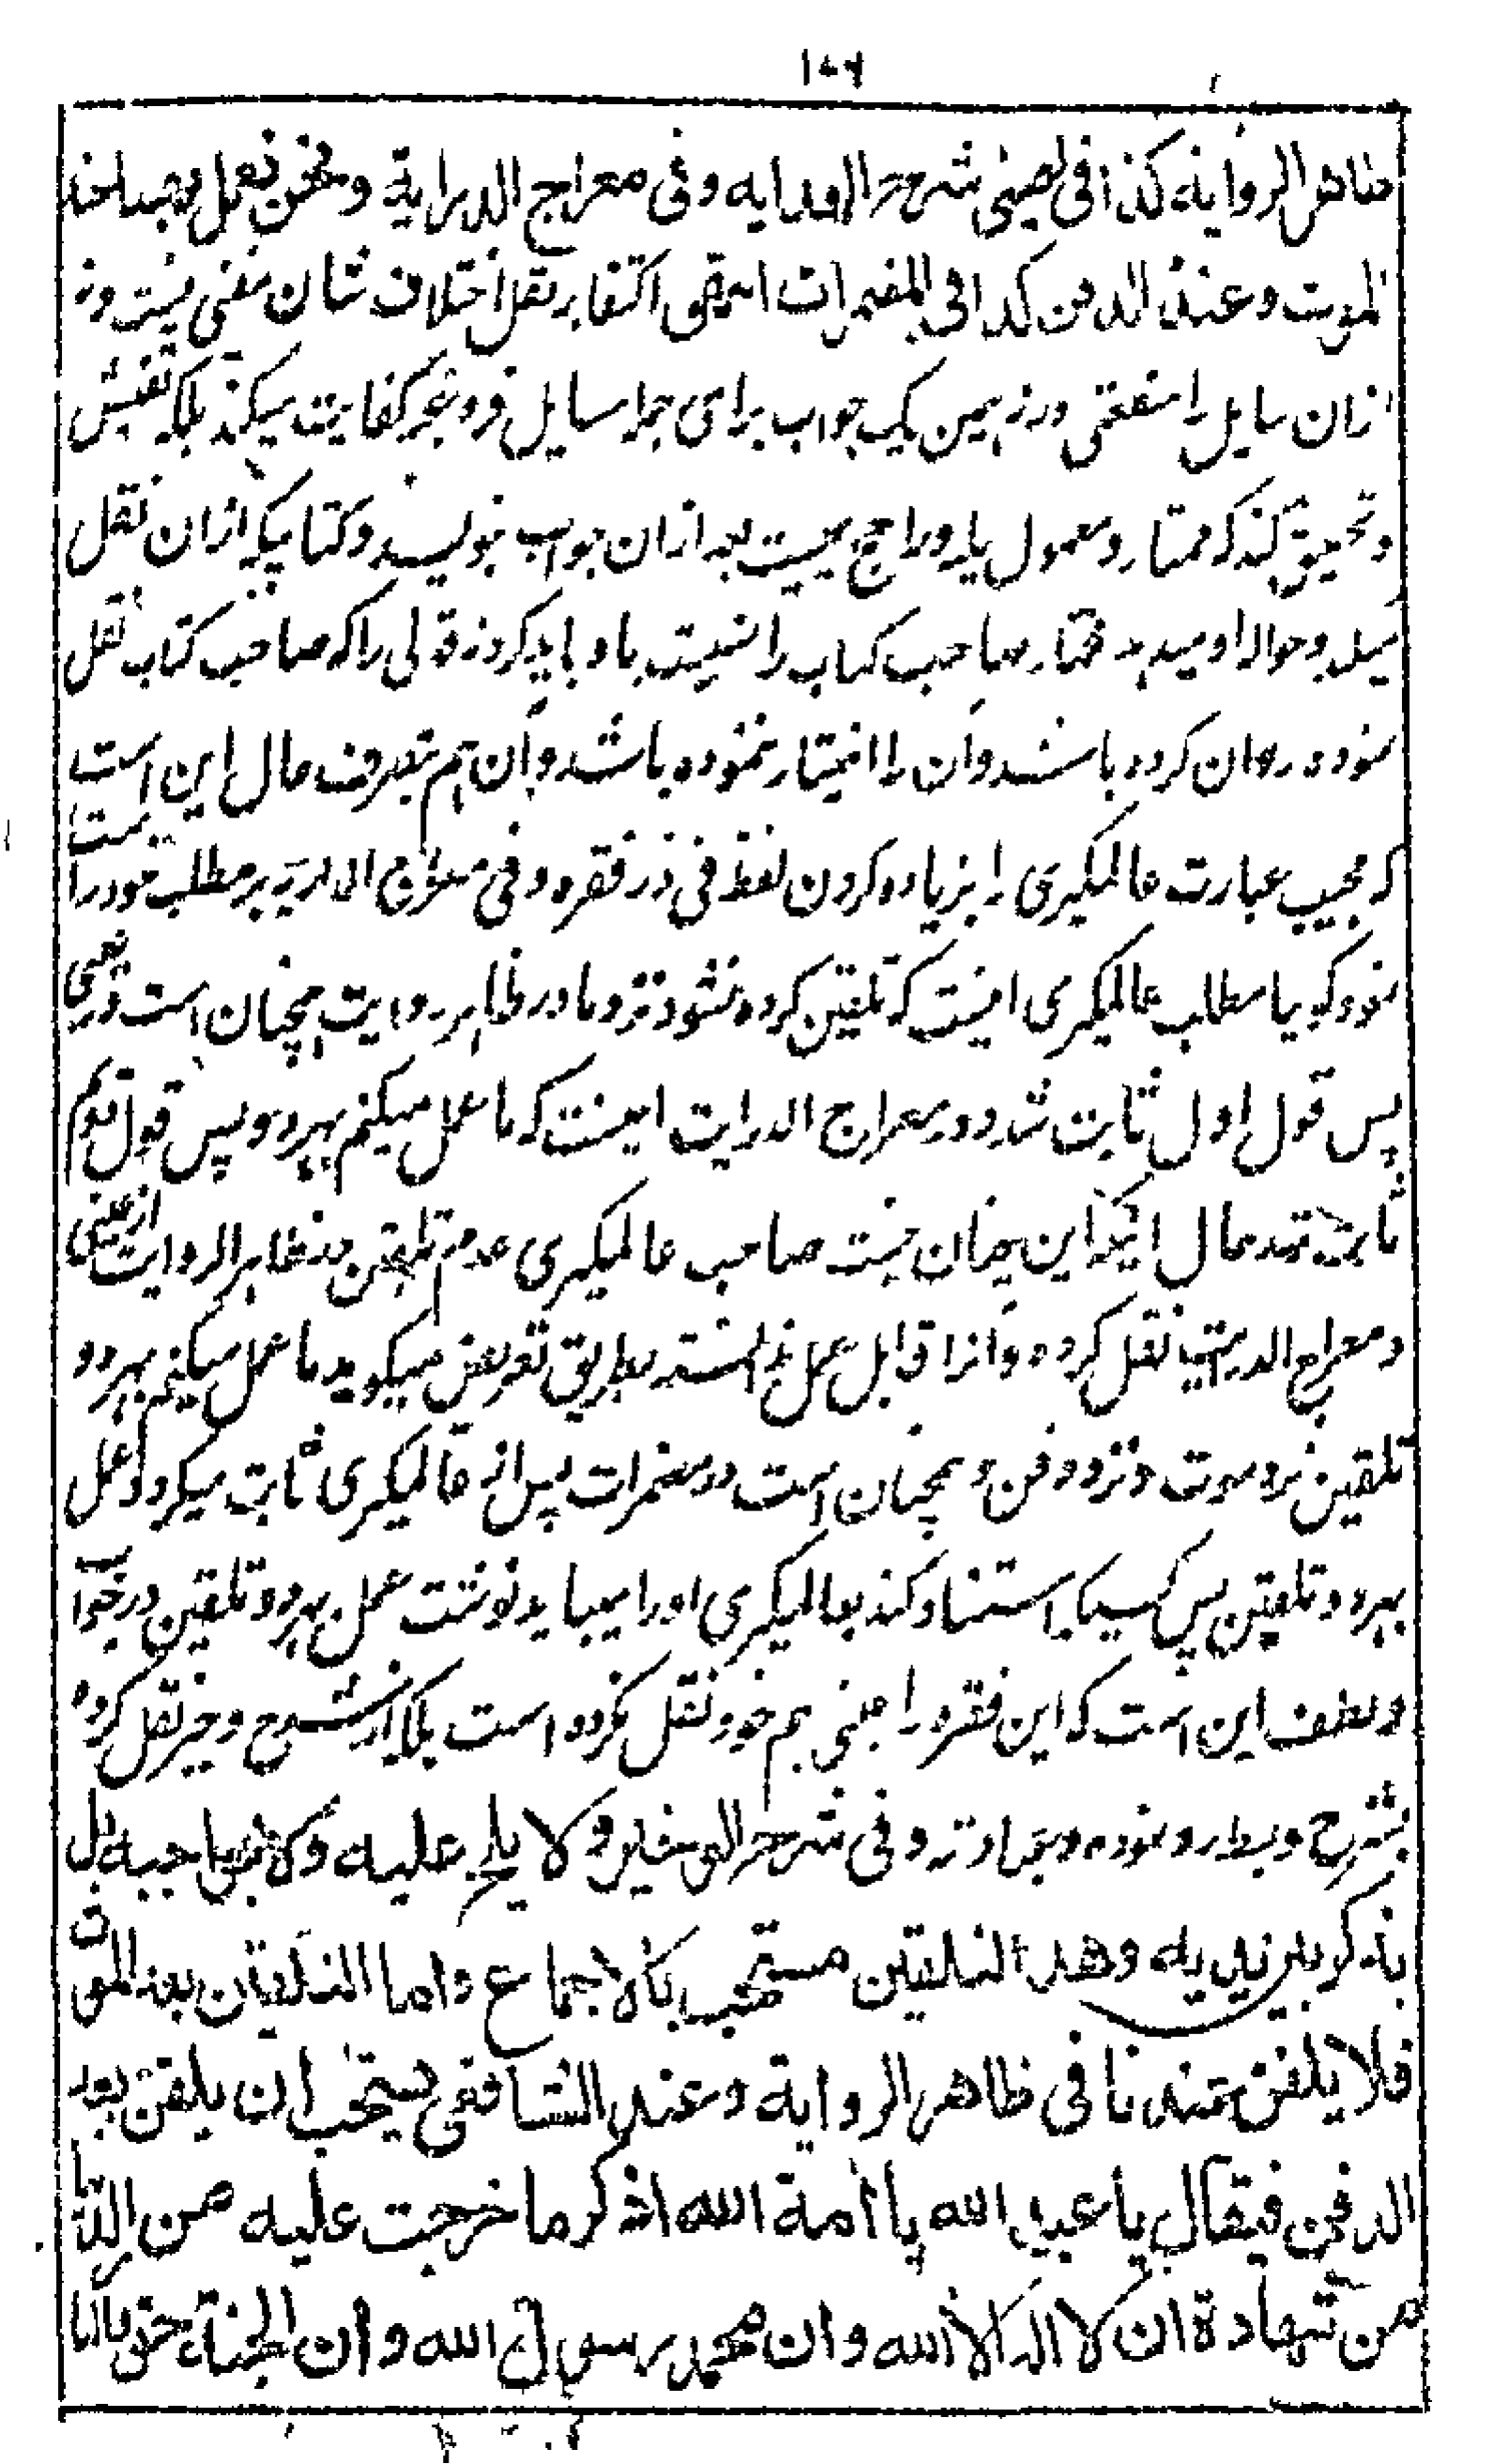 ۱۰۶
ظاهر الروایة کذا فی العینی شرح الهدایه وفی معراج الدرایة ونحن نعمل بهما عند
الموت وعند الدفن کذا فی المضمرات انتهی اکتفا بر نقل اختلاف شان مفتی نیست ونه
ازان سایل را منفعتی ورنه همین یک جواب برای جمله سایل فروعیه کفایت میکند بلکه تفتیش
و تحقیق کند که مختار و معمول به و راجح چیست بعد ازان جواب بنویسد و کتابیکه ازان نقل
میکند و حواله او میدهد مختار صاحب کتاب را نسبت باو باید کرد نه قولی را که صاحب کتاب نقل
نموده روان کرده باشد و آن را اختیار ننموده باشد و آن هم بتصرف حال این است
که مجیب عبارت عالمگیری را بزیاده کردن لفظ فی در فقره وفی معراج الدرایه بر مطلب خود راست
نمود گویا مطلب عالمگیری اینست که تلقین کرده نشود نزد ما در ظاهر روایت همچنان است در عینی
پس قول اول ثابت شد و در معراج الدرایت اینست که ما عمل میکنم بهر دو پس قول دوم
ثابت شد حال آنکه این چنان نیست صاحب عالمگیری عدم تلقین عند ظاهر الروایت از عینی
و معراج الدرایت نقل کرده و آنرا قابل عمل ندانسته بطریق تعریض میگوید ما عمل میکنیم بهر دو
تلقین نزد موت و نزد دفن و همچنان است در مضمرات پس از عالمگیری ثابت میگردد عمل
بهر دو تلقین پس کسیکه استناد کند بعالمگیری او را میباید نوشت عمل بهر دو تلقین در جواب
و لطف این است که این فقره را عینی هم خود نقل نکرده است بلکه از شرح وجیز نقل کرده
بشرح و بسط رد نموده و عبارته وفی شرح الوجیز ولا یلح علیه ولا یواجبه بل
یذکر بین یدیه وهذا التلقین مستحب بالاجماع واما التلقین بعد الموت
فلا یلقن عندنا فی ظاهر الروایة وعند الشافعی یستحب ان یلقن بعد
الدفن فیقال یا عبد الله یا أمة الله اذکر ما خرجت علیه من الدنیا
من شهادة ان لا اله الا الله وان محمد رسول الله وان الجنة حق